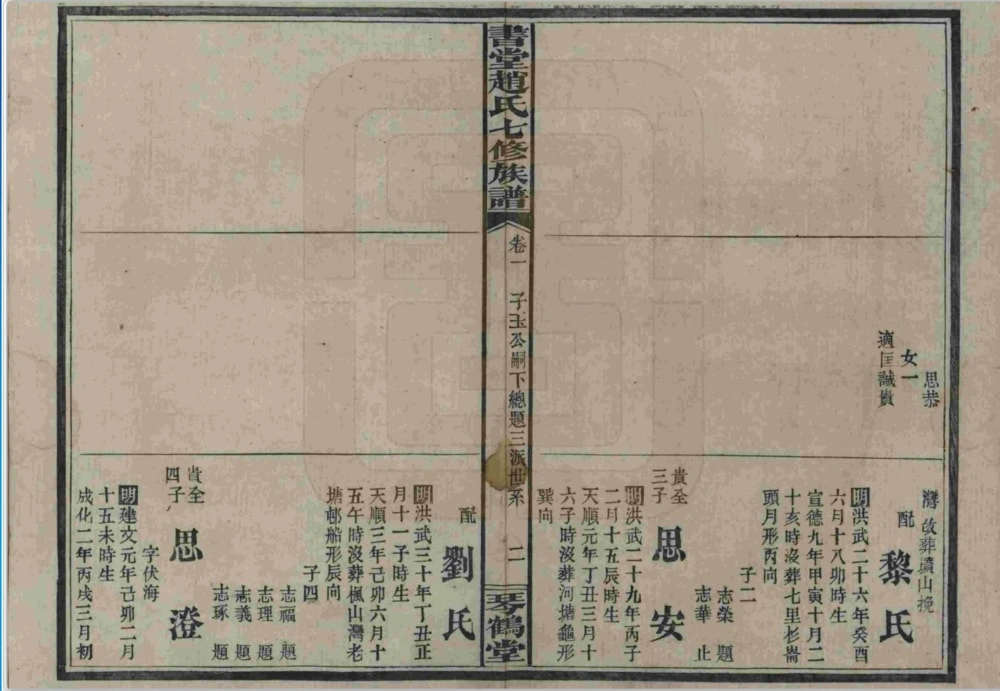 思恭
女一
適匡誠貴
灣改葬讀山挽
配
黎氏
明洪武二十六年癸酉
六月十八卯時生
宣德九年甲寅十月二
十亥時沒葬七里杉崙
頭月形丙向
子二
志榮 題
志華 止
貴全
三子
思安
明洪武二十九年丙子
二月十五辰時生
天順元年丁丑三月十
六子時沒葬河塘龜形
巽向
書堂趙氏七修族譜
卷一 子玉公嗣下總題三派世系 二
琴鶴堂
配
劉氏
明洪武三十年丁丑正
月十一子時生
天順三年己卯六月十
五午時沒葬楓山灣老
塘邨船形辰向
子四
志福 題
志理 題
志義 題
志琢 題
貴全
四子
思澄
字伏海
明建文元年己卯二月
十五未時生
成化二年丙戌三月初